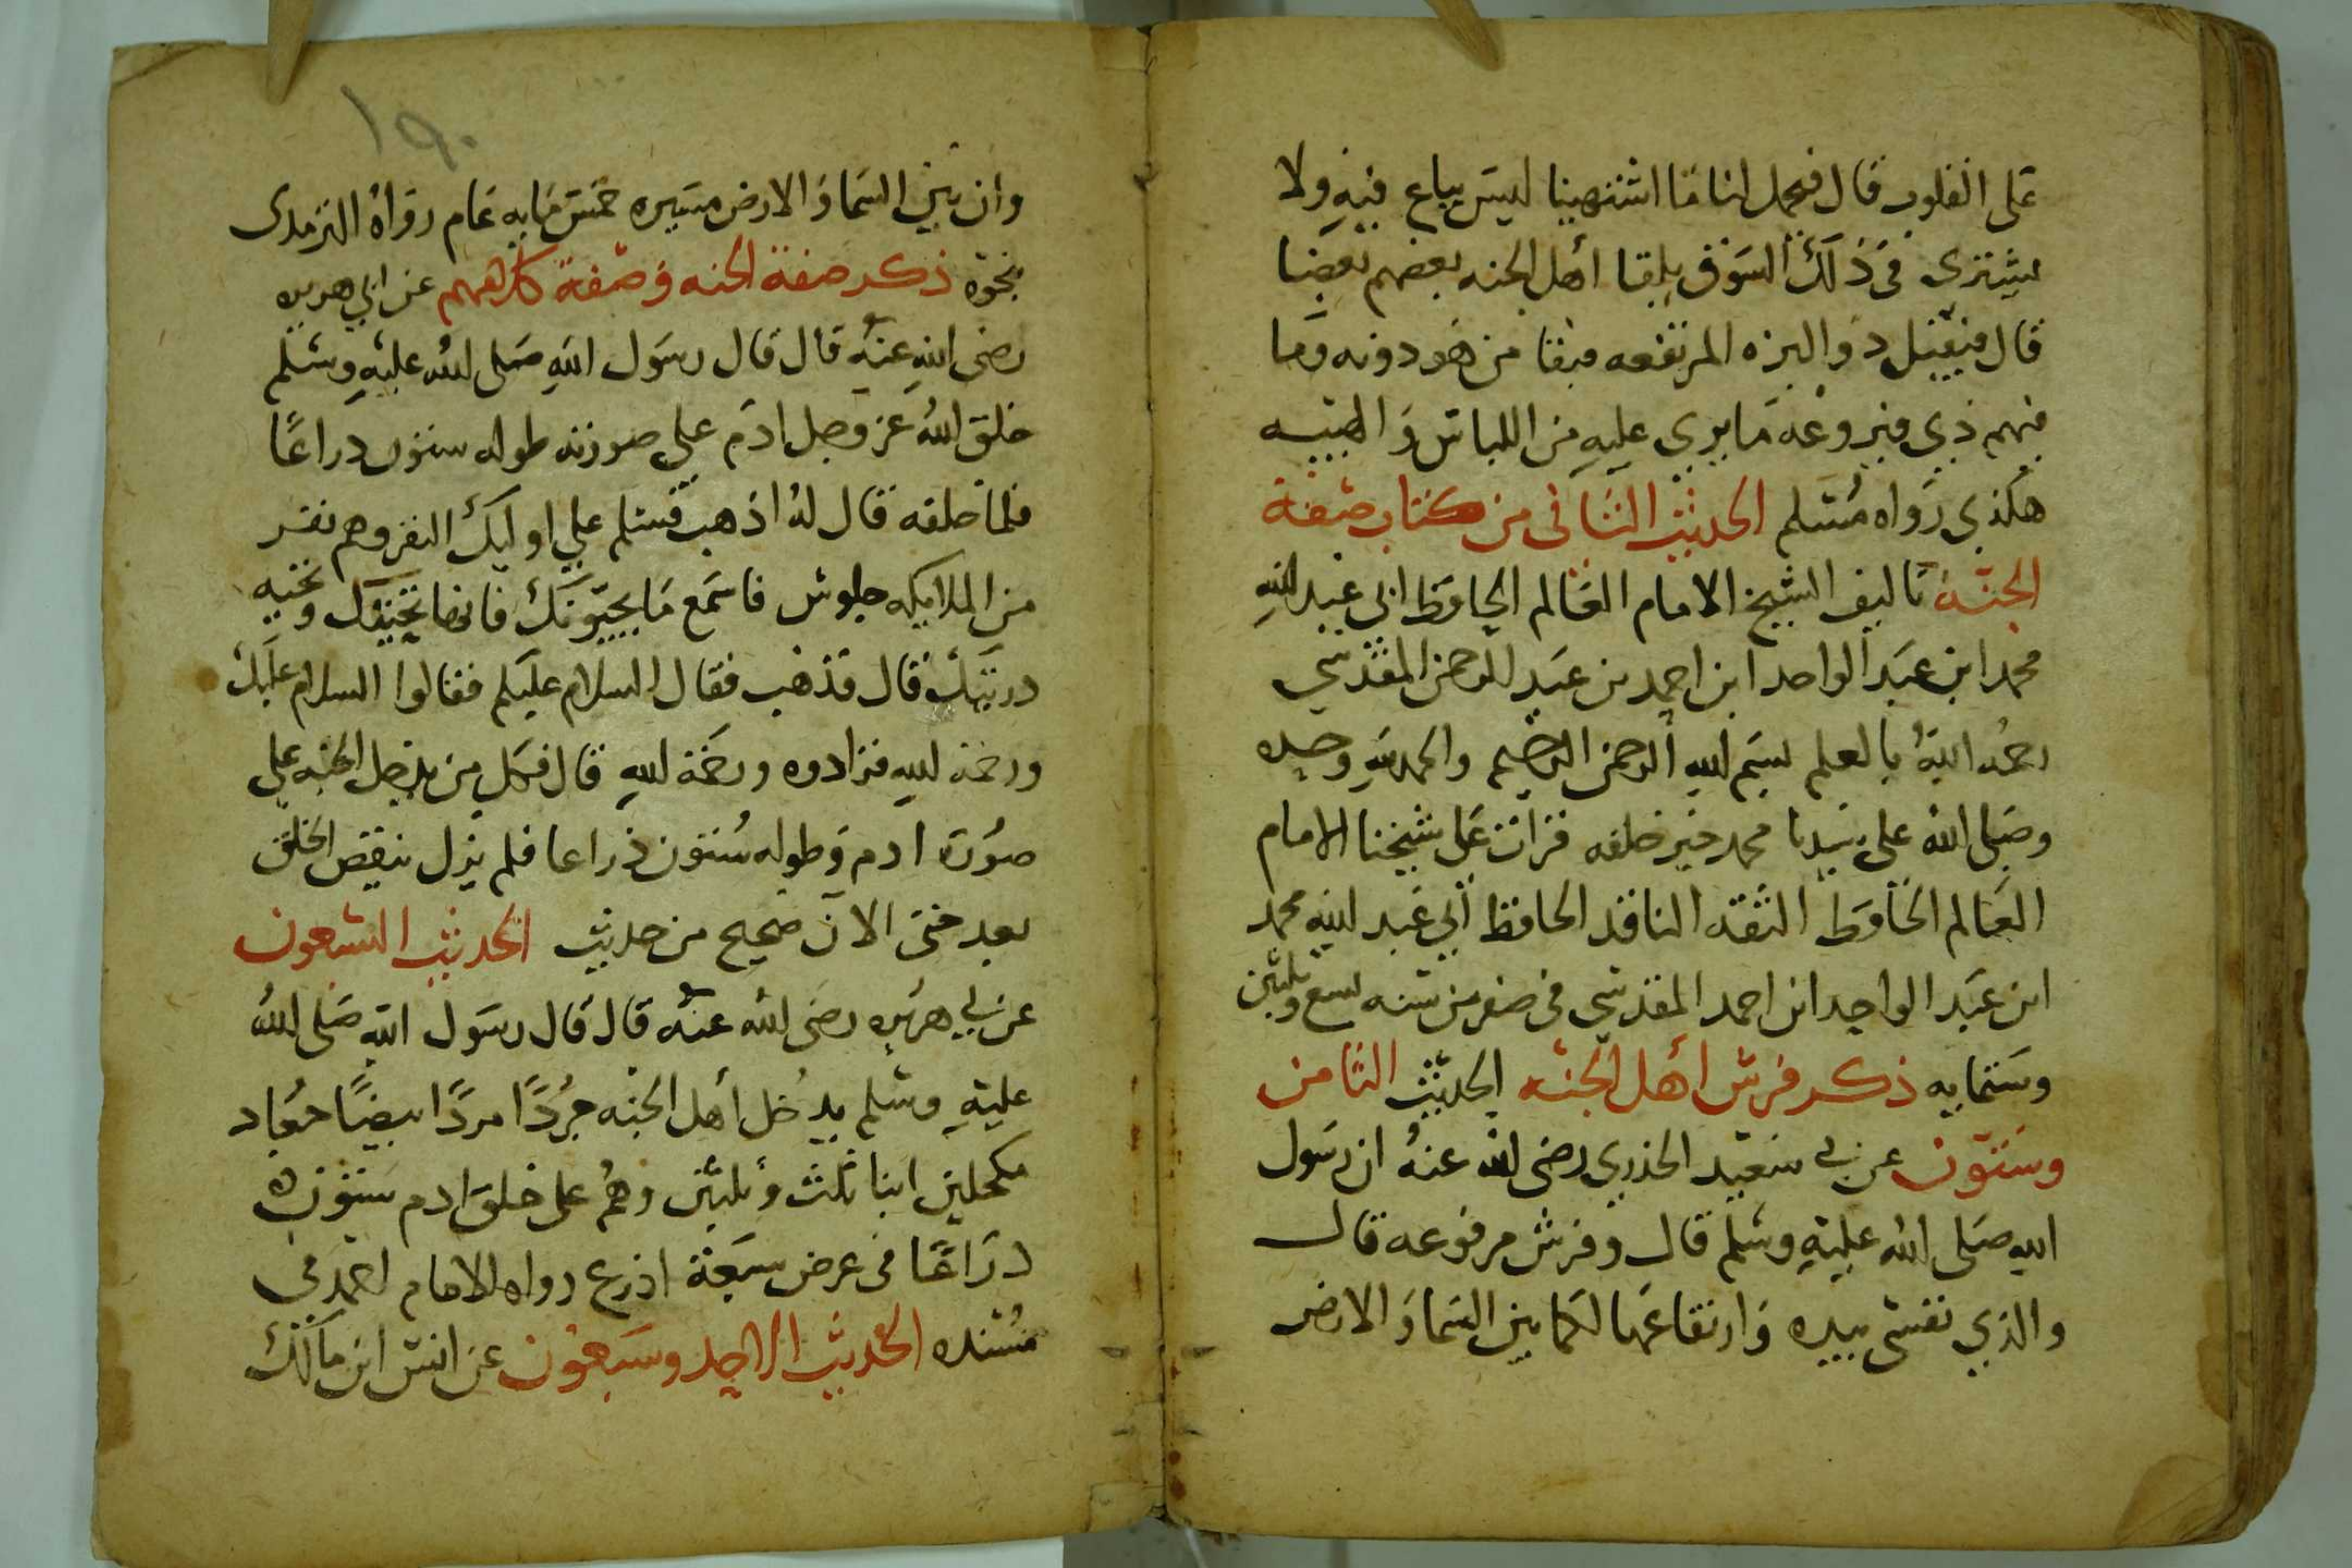 على القلوب قال فيحمل لنا ما اشتهينا ليس يباع فيه ولا
يشترى في ذلك السوق يلقا أهل الجنه بعضهم بعضا
قال فيقبل ذو البزه المرتفعه فيلقا من هو دونه وما
فيهم ذي فيروعه ما يرى عليه من اللباس والهيئه
هكذى رواه مسلم الحديث الثاني من كتاب صفة
الجنة تاليف الشيخ الامام العالم الحافظ ابي عبد الله
محمد ابن عبد الواحد ابن احمد بن عبد الرحمن المقدسي
رحمه الله بالعلم بسم الله الرحمن الرحيم والحمد لله وحده
وصلى الله على سيدنا محمد خير خلقه قرات على شيخنا الامام
العالم الحافظ الثقه الناقد الحافظ أبي عبد الله محمد
ابن عبد الواحد ابن احمد المقدسي في صفر من سنه تسع وثلثين
وستمايه ذكر فرش أهل الجنه الحديث الثامن
وستون عن بي سعيد الخدري رضى الله عنه ان رسول
الله صلى الله عليه وسلم قال وفرش مرفوعه قال
والذي نفسي بيده وارتفاعها لكما بين السما والارض
١٩٠
وان بين السما والارض مسيره خمس مايه عام رواه الترمدى
بنحوه ذكر صفة الجنه وصفة كلاهمم عن ابي هريره
رضى الله عنه قال قال رسول الله صلى الله عليه وسلم
خلق الله عز وجل ادم على صورته طوله ستون دراعًا
فلما خلقه قال له اذهب فسلم على اوليك النفر وهم نفر
من الملايكه جلوس فاسمع ما يحيونك فانها تحيتك وتحيه
دريتك قال فذهب فقال السلام عليكم فقالوا السلام عليك
ورحمة الله فزادوه ورحمة الله قال فكل من يدخل الجنه على
صورة ادم وطوله ستون ذراعا فلم يزل ينقص الخلق
بعد حتى الآن صحيح من حديث الحديث السبعون
عن بي هريره رضى الله عنه قال قال رسول الله صلى الله
عليه وسلم يدخل أهل الجنه جردًا مردًا بيضًا جعاد
مكحلين ابنا ثلث وثلثين وهم على خلق ادم ستون
دراعًا في عرض سبعة اذرع رواه الامام احمد في
مسنده الحديث الاحد وسبعون عن انس ابن مالك